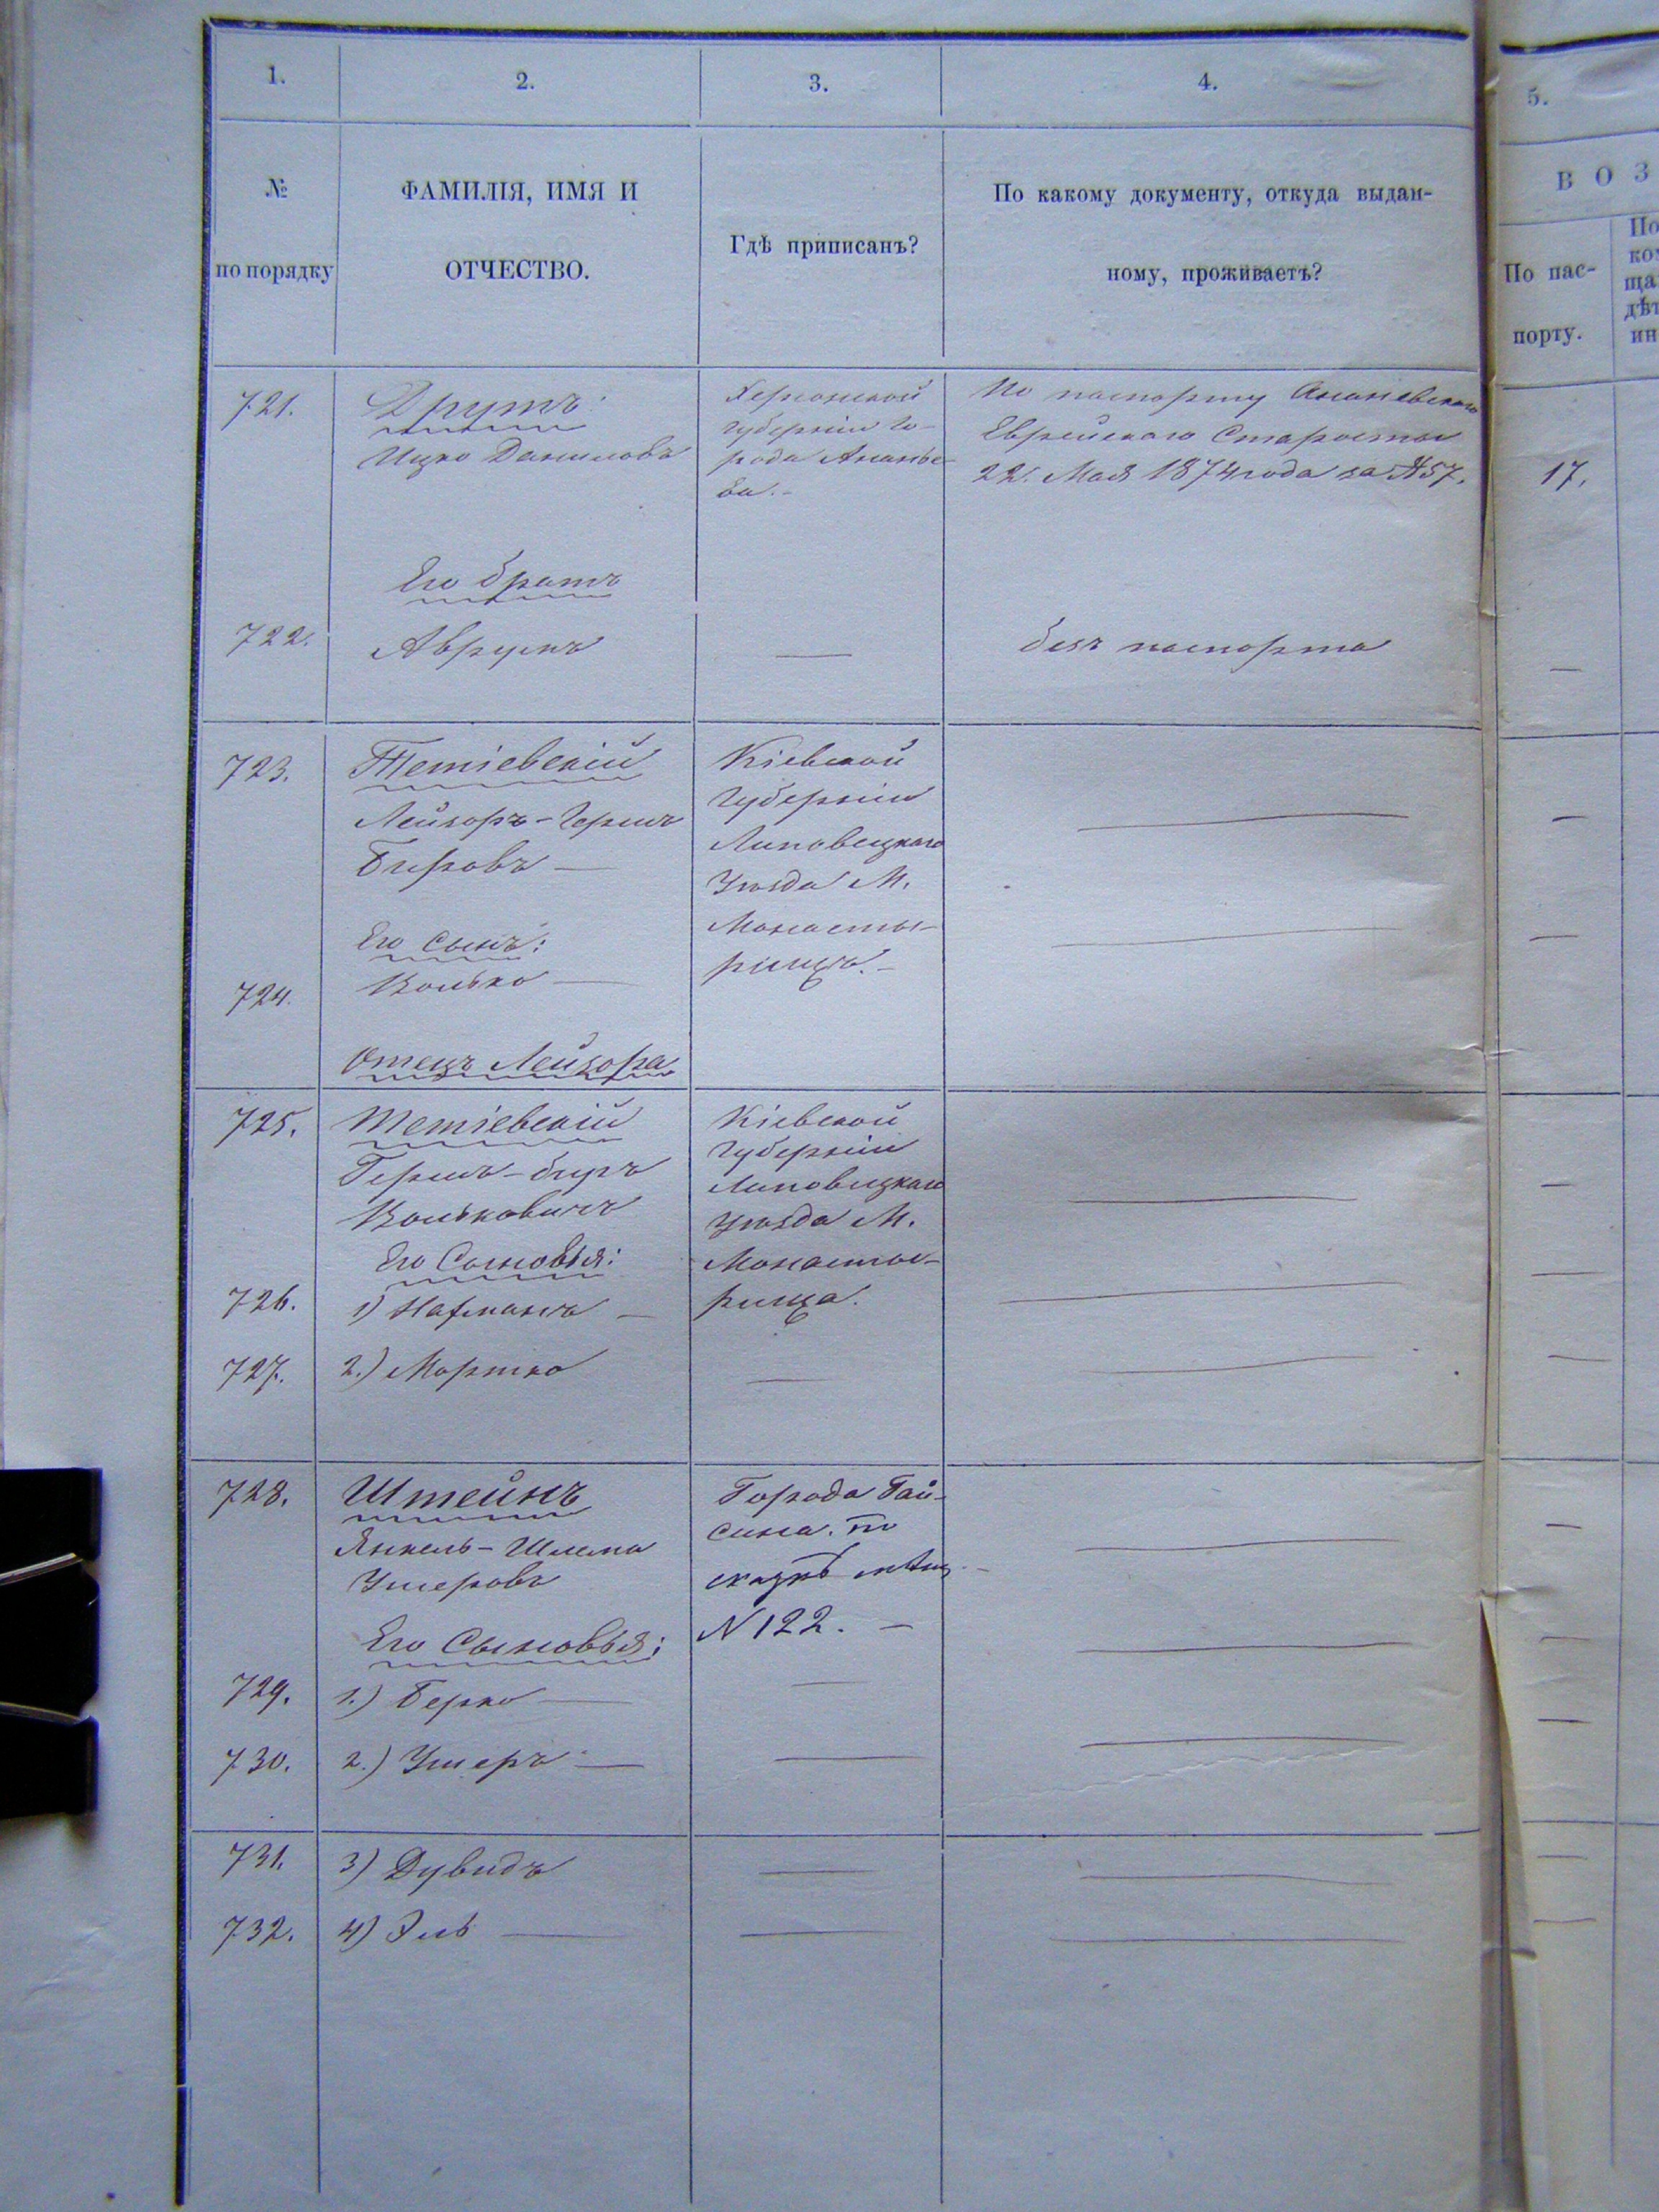 1.
2.
3.
4.
5.
№
по порядку
ФАМИЛІЯ, ИМЯ И
ОТЧЕСТВО.
Гдѣ приписанъ?
По какому документу, откуда выдан-
ному, проживаетъ?
В О З
По пас-
порту.
По
ко
ща
дѣ
ин
721.
Друтъ
Ицко Даниловъ
Херсонской
губерніи го-
рода Ананье-
ва.-
По паспорту Ананевскаго
Еврейскаго Старосты
22. Мая 1874 года за № 57.
17.
Его братъ
722.
Аврумъ
безъ паспорта
723.
Тетіевскій
Лейзоръ-Гершъ
Бировъ
Кіевской
Губерніи
Липовецкаго
Уѣзда М.
Монасты-
рища.-
Его Сынъ:
724.
Волько
Отецъ Лейзора
725.
Тетіевскій
Гершъ-биръ
Вольковичъ
Кіевской
Губерніи
Липовецкаго
Уѣзда М.
Монасты-
рища.
Его Сыновья:
726.
1) Нахманъ
727.
2.) Мортко
728.
Штейнъ
Янкель-Шлема
Ушеровъ
Города Гай-
сина. по
сказкѣ
N 122.
Его Сыновья:
729.
1.) Берко
730.
2.) Ушеръ
731.
3) Дувидъ
732.
4) Эль